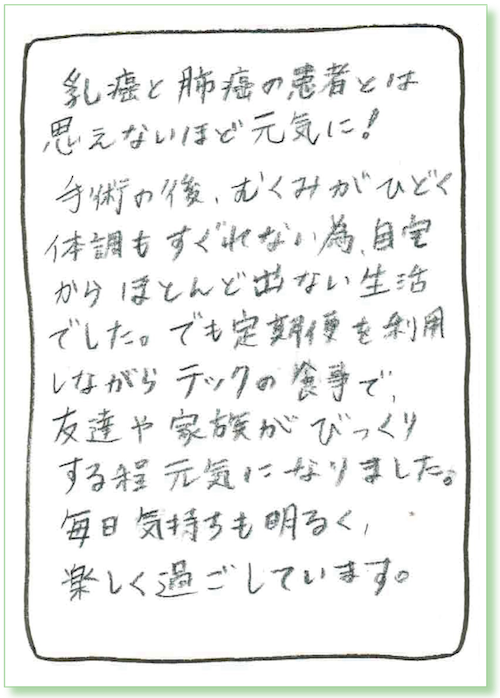 乳癌と肺癌の患者とは
思えないほど元気に!
手術の後、むくみがひどく
体調もすぐれない為、自宅
からほとんど出ない生活
でした。でも定期便を利用
しながらテックの食事で、
友達や家族がびっくり
する程元気になりました。
毎日気持ちも明るく、
楽しく過ごしています。